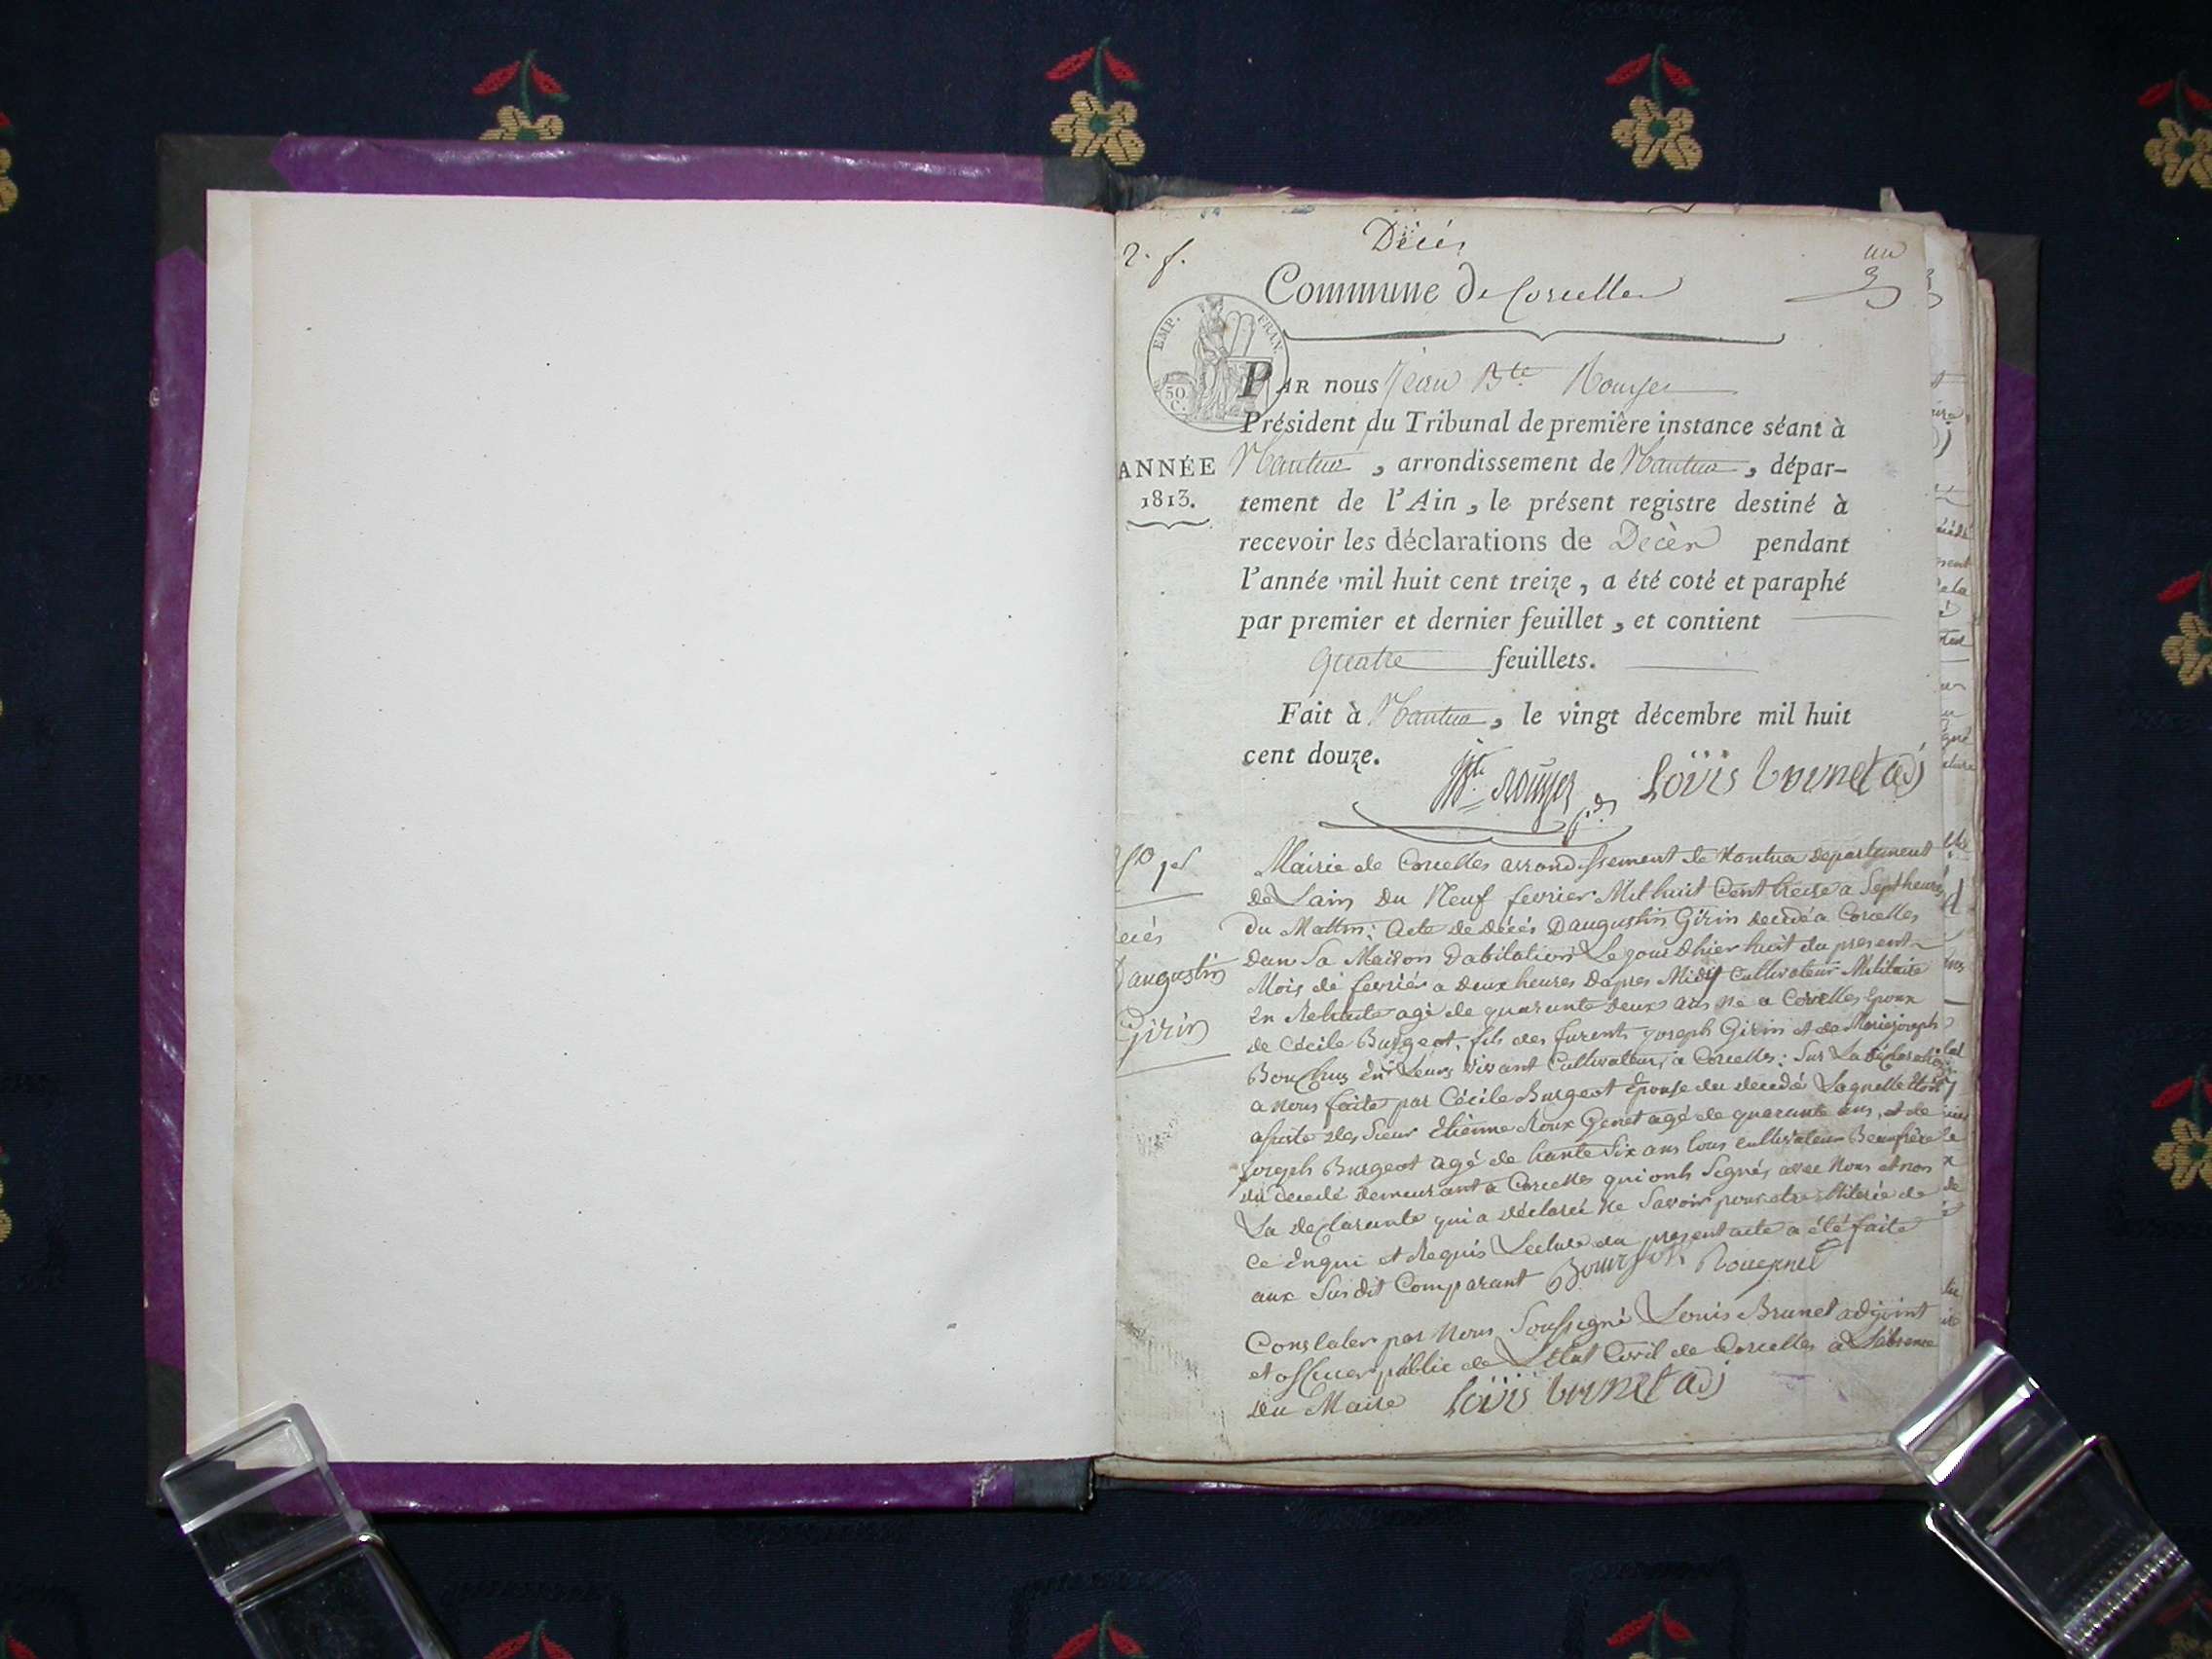 Décès
2. f.
un
Commune de Corcelles
EMP. FRAN.
50 C.
PAR nous Jean Bte. Rouyer
Président du Tribunal de première instance séant à
ANNÉE
1813.
Nantua, arrondissement de Nantua, dépar-
tement de l'Ain, le présent registre destiné à
recevoir les déclarations de Décès pendant
l'année mil huit cent treize, a été coté et paraphé
par premier et dernier feuillet, et contient
quatre feuillets.
Fait à Nantua, le vingt décembre mil huit
cent douze.
Bte. Rouyer Louis brunet adj
Mairie de Corcelles arrondissement de Nantua departement
De Lain Du Neuf fevrier Mil huit Cent treize a Sept heures
du Mattin; Acte de décés Daugustin Girin decedé a Corcelles
Dans Sa Maison Dabitation Le jour Dhier huit du present
Mois de fevrier a Deux heures Dapres Midy Cultivateur Militaire
En Retraite agé de quarante deux ans né a Corcelles Epoux
de Cécile Burgeot, fils des furent joseph Girin et de Marie joseph
Bouchus En Leurs vivant Cultivateur, a Corcelles: Sur La déclaration
a nous faite par Cécile Burgeot Epouse du decedé Laquelle Etoit
asisté des Sieur Etienne Roux Genet agé de quarante ans, et de
joseph Burgeot agé de trante Six ans tous cultivateur Beaufrère
du decedé demeurant a Corcelles qui onts Signés avec Nous et non
La declarante qui a déclaré ne Savoir pour etre illiterée de
ce Enqui et Requis Lecture du present acte a été faite
aux Sus dit Comparant
Constater par Nous Soussigné Louis Brunet adjoint
et officier public de L'Etat Civil de Corcelles a L'absence
du Maire Louis brunet adj
No 1er
ecés
Daugustin
Girin